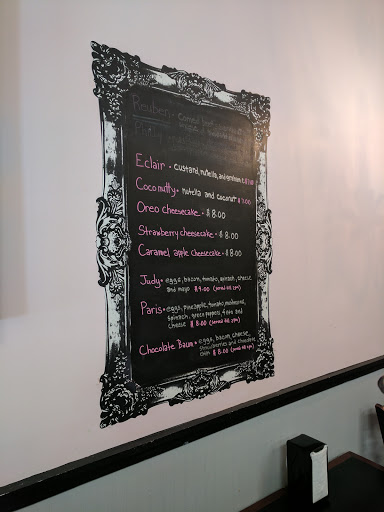 Reuben - Corned beef
Philly
Eclair - custard, nutella, and graham
Coconutty - nutella and coconut $7.00
Oreo cheesecake - $8.00
Strawberry cheesecake - $8.00
Caramel apple cheesecake - $8.00
Judy - eggs, bacon, tomato, spinach, cheese
and mayo $9.00 (served till 2pm)
Paris - eggs, pineapple, tomato, mushrooms,
spinach, green peppers, feta and
cheese $8.00 (served till 2pm)
Chocolate Baum - eggs, bacon, cheese,
strawberries and chocolate
chip $8.00